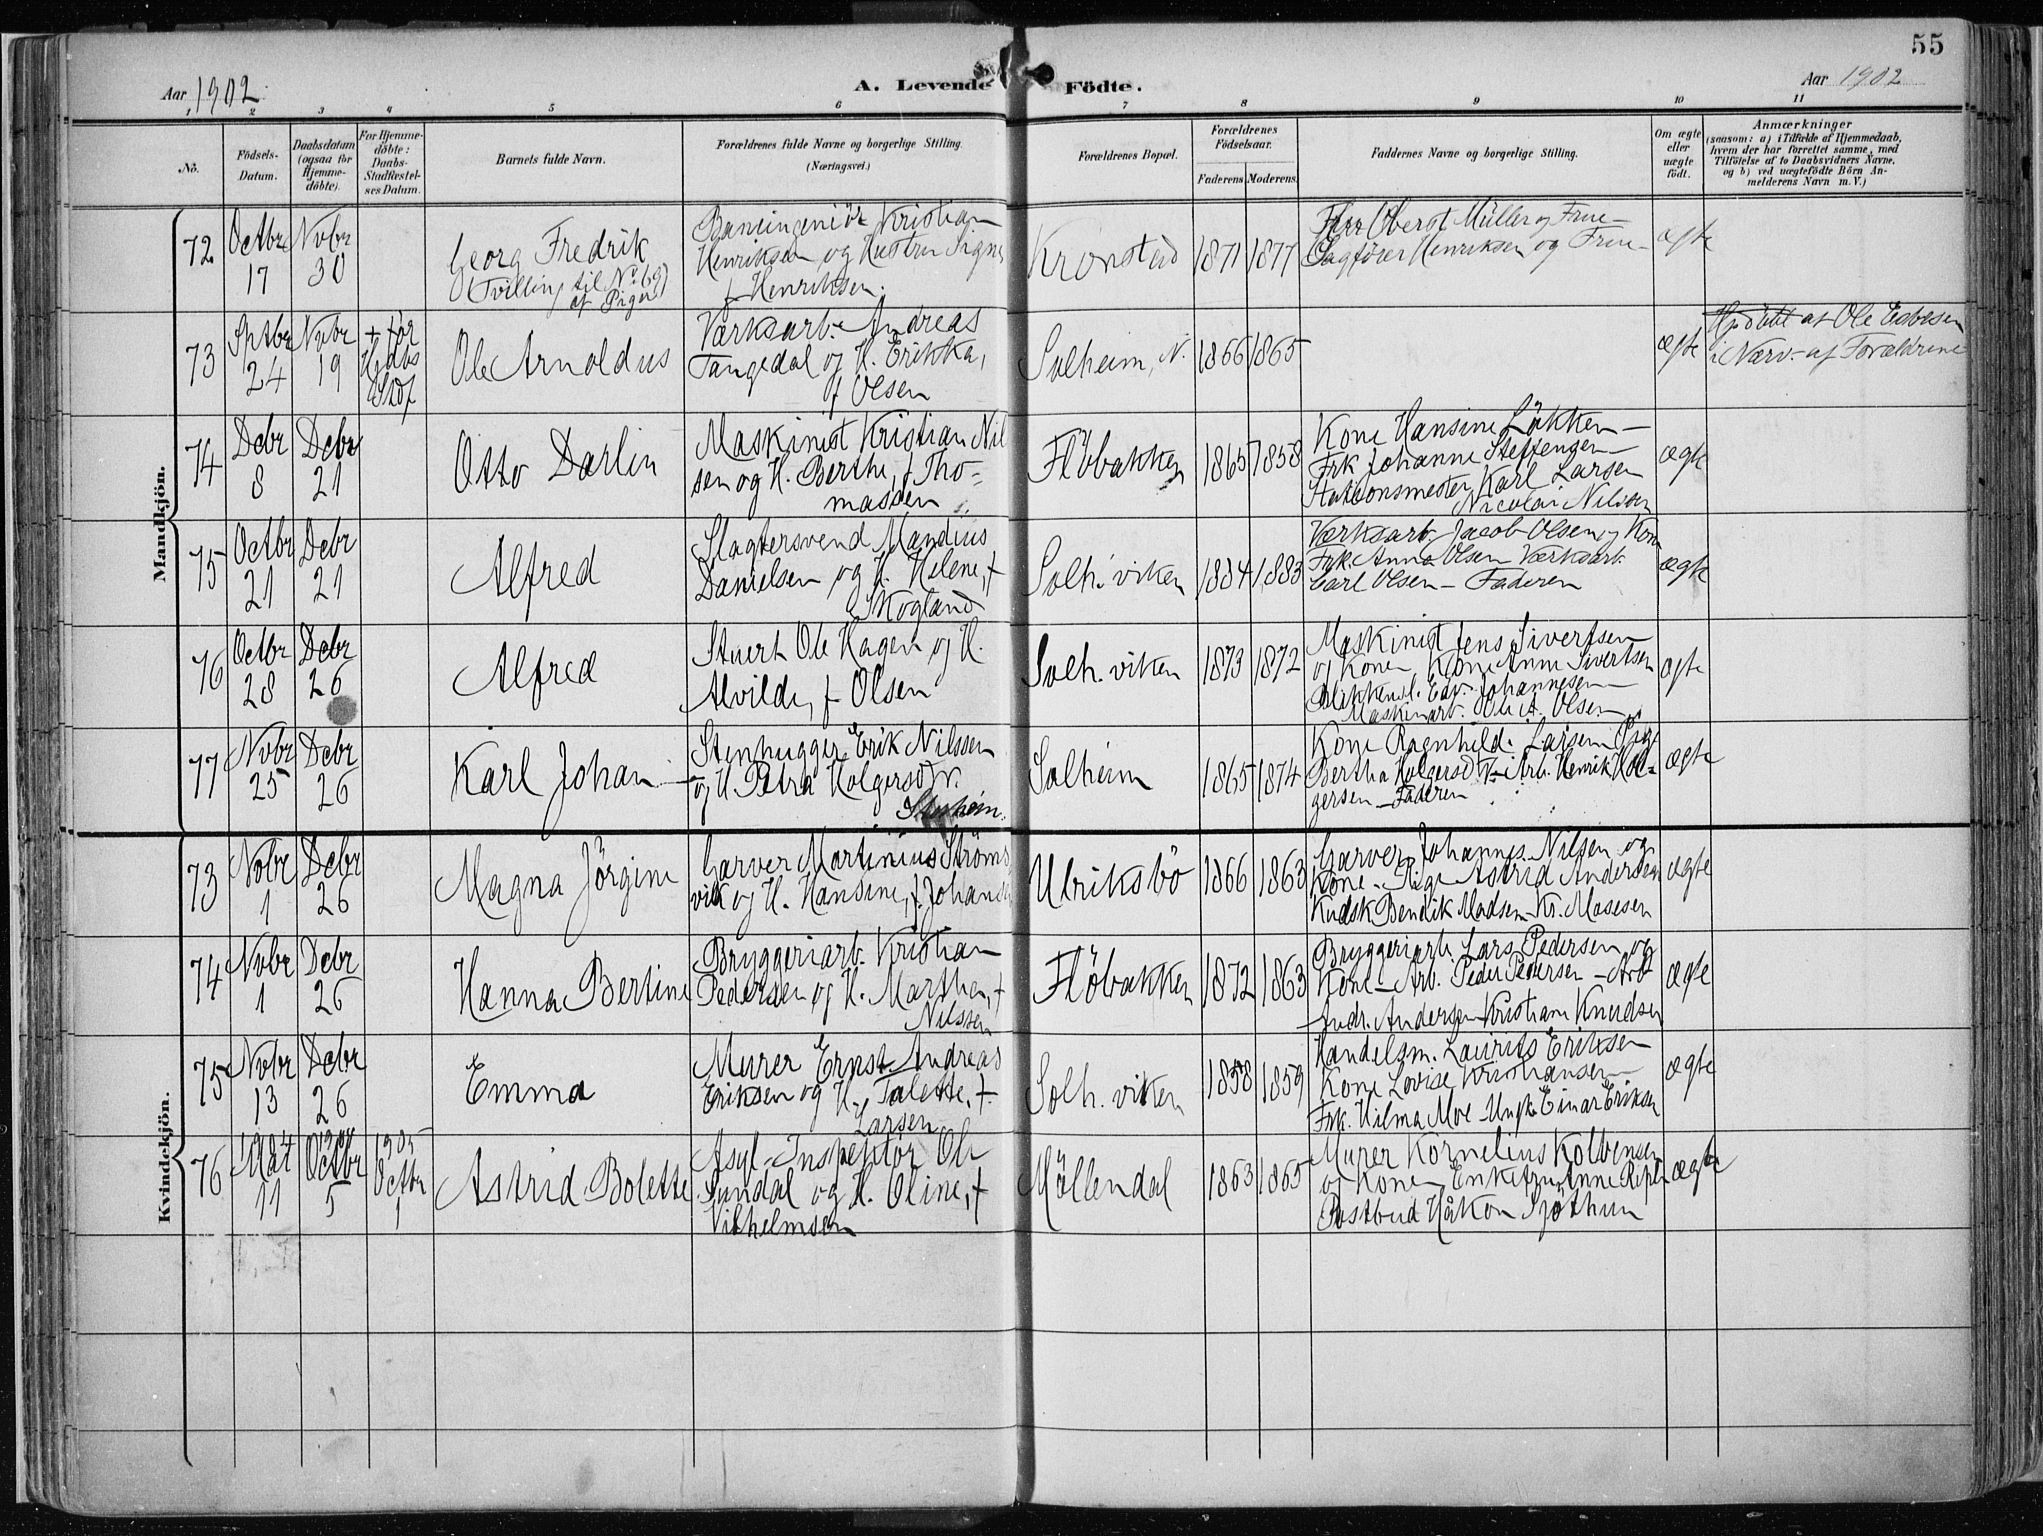 55
Aar 1902.
A. Levende Födte.
Aar 1902
1 2 3 4 5 6 7 8 9 10 11
No.
Födsels-
Datum.
Daabsdatum
(ogsaa for
Hjemme-
döbte).
For Hjemme-
döbte:
Daabs-
Stadfestel-
ses Datum.
Barnets fulde Navn.
Forældrenes fulde Navne og borgerlige Stilling.
(Næringsvei.)
Forældrenes Bopæl.
Forældrenes
Födselsaar.
Faderens. Moderens.
Faddernes Navne og borgerlige Stilling.
Om ægte
eller
uægte
födt.
Anmærkninger
(saasom: a) i Tilfælde af Hjemmedaab,
hvem der har forrettet samme, med
Tilföielse af to Daabsvidners Navne,
og b) ved uægtefödte Börn An-
melderens Navn m. V.)
Mandkjön.
72
Octbr
17
Nvbr
30
Georg Fredrik
(Tvilling til No 69
af Piger)
Baneingeniör Kristian
Henriksen og Hustru Signe
f Henriksen.
Kronstad
1871
1877
Herr Oberst Müller og Frue -
Sagförer Henriksen og Frue -
ægte
73
Sptbr
24
Nvbr
19
+ før
Hjdbs
Stdf
Ole Arnoldus
Værksarb. Andreas
Tangedal og H. Erikka,
f Olsen
Solheim, N.
1866
1865
ægte
Hjdöbt af Ole Esbesen
i Nærv. af Forældrene
74
Dcbr
8
Dcbr
21
Otto Darlin
Maskinist Kristian Nil
sen og H. Berthe, f Tho-
massen
Flöbakken
1865
1858
Kone Hansine Løkken -
Frk Johanne Steffensen -
Stationsmester Karl Larsen
Nicolai Nilsen
ægte
75
Octbr
21
Dcbr
21
Alfred
Slagtersvend Mandius
Danielsen og H. Helene, f
Skogland
Solh. viken
1884
1883
Værksarb. Jacob Olsen og Kone
Frk. Anna Olsen Værksarb.
Carl Olsen - Faderen
ægte
76
Octbr
28
Dcbr
26
Alfred
Stuert Ole Hagen og H.
Alvilde, f Olsen
Solh. viken
1873
1872
Maskinist Jens Sivertsen
og Kone Kone Anne Sivertsen
Blikkensl. Edv. Johannesen -
Maskinarb. Ole A. Olsen
ægte
77
Nvbr
25
Dcbr
26
Karl Johan
Stenhugger Erik Nilssen
og H. Petra Holgersdtr.
Solheim
1865
1874
Kone Ragnhild Larsen Pige
Bertha Holgersdtr - Arb. Henrik Hol-
gersen - Faderen
ægte
Kvindekjön.
73
Nvbr
1
Dcbr
26
Magna Jörgine
Garver Martinius Ströms
vik og H. Hansine, f. Johansen
Ulriksbö
1866
1863
Garver Johannes Nilsen og
Kone - Pige Astrid Andersen
Kudsk Bendik Madsen - Kr. Mosesen
ægte
74
Nvbr
1
Dcbr
26
Hanna Bertine
Bryggeriarb. Kristian
Pedersen og H. Martha, f
Nilssen
Flöbakken
1872
1863
Bryggeriarb. Lars Pedersen og
Kone - Arb. Peder Pedersen - Arb
Andr. Andersen - Kristiane Knudsen
ægte
75
Nvbr
13
Dcbr
26
Emma
Murer Ernst Andreas
Eriksen og H. Talette, f.
Larsen
Solh. viken
1858
1859
Handelsm. Laurits Eriksen
Kone Lovise Kristiansen -
Frk. Hilma Moe - Ungk. Einar Eriksen
ægte
76
Mai
11
Octbr
5
1905
Octbr
1
Astrid Bolette
Asyl-Inspektör Ole
Sundal og H. Oline, f
Vilhelmsen
Möllendal
1863
1865
Murer Kornelius Kolbensen
og Kone - Enkefru Anne
Postbud Håkon Sjöthun
ægte